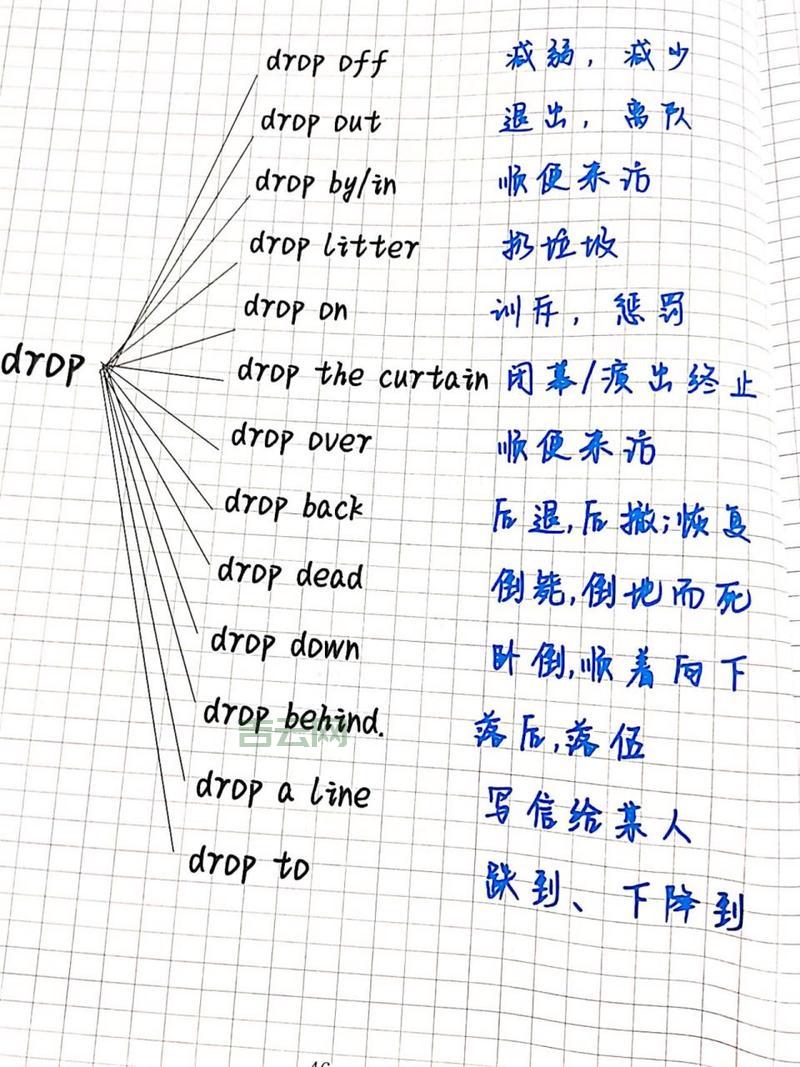 drop off 减弱，减少
drop out 退出，离队
drop by/in 顺便来访
drop litter 扔垃圾
drop on 训斥，惩罚
drop
drop the curtain 闭幕/演出终止
drop over 顺便来访
drop back 后退,后撤;恢复
drop dead 倒毙,倒地而死
drop down 卧倒,顺着向下
drop behind. 落后,落伍
吉云网
drop a line 写信给某人
drop to 跌到、下降到